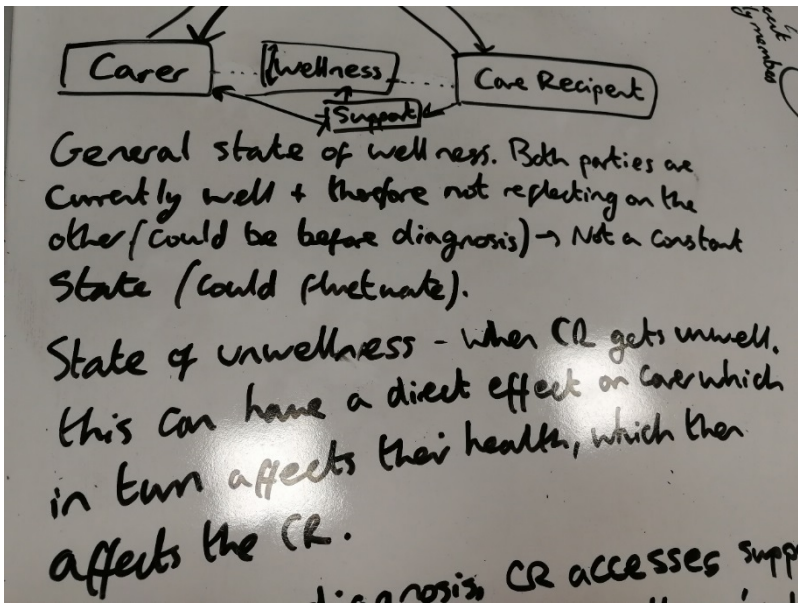 Carer
Wellness
Care Recipent
Support
General state of wellness. Both parties are
currently well + therefore not reflecting on the
other (could be before diagnosis) → Not a constant
state (could fluctuate).
State of unwellness - when CR gets unwell,
this can have a direct effect on carer which
in turn affects their health, which then
affects the CR.
diagnosis, CR accesses supp
member